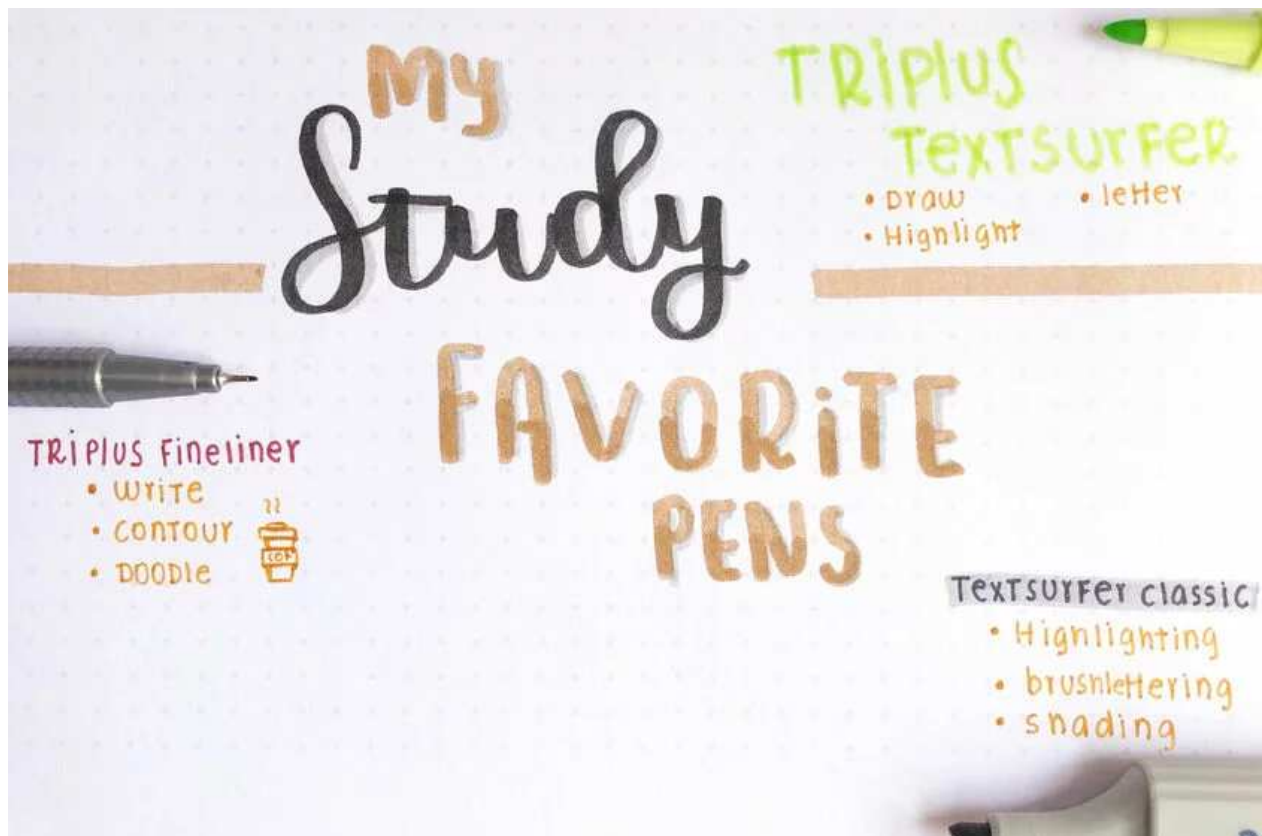 My
Study
FAVORiTE
PENS
TRiPlUS
TexTSUrFeR
• Draw
• Highlight
• letter
TRiPlUS Fineliner
• WriTe
• CONTOUr
• DOODle
TexTSUrFer classic
• Highlighting
• brushlettering
• shading